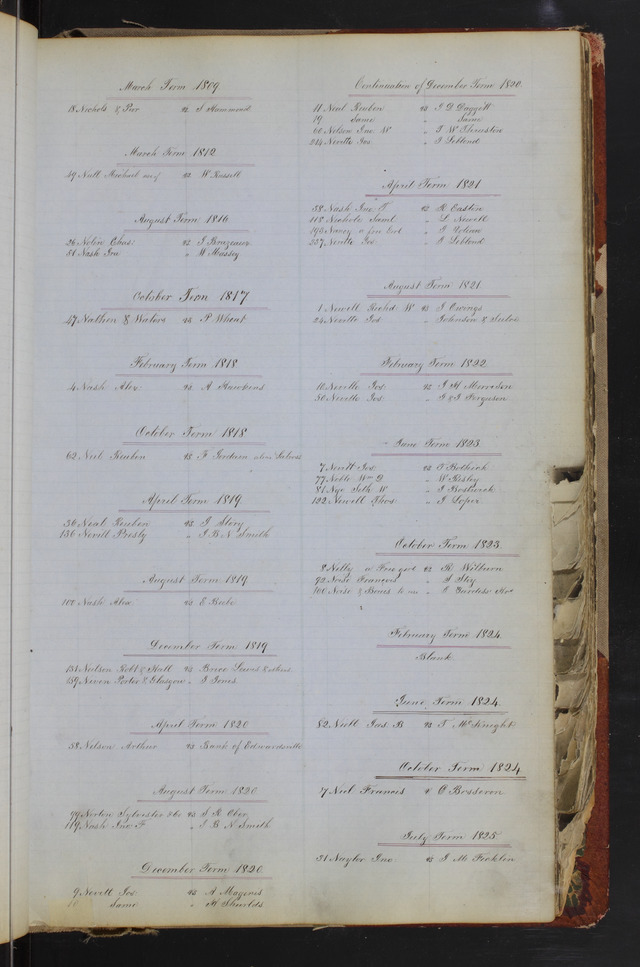 March Term 1809
18 Nichols & Pier vs S Hammond
March Term 1812
49 Null Michael vs W Russell
August Term 1816
26 Nolin Chas vs J Bruzeaux
51 Nash Ira " W Massey
October Term 1817
47 Nathon & Waters vs P Wheat
February Term 1818
4 Nash Alex vs A Hawkins
October Term 1818
62 Niel Reuben vs F Jordain alias
April Term 1819
36 Neal Reuben vs J Story
136 Nevill Presly " J B N Smith
August Term 1819
100 Nash Alex vs E Beebe
December Term 1819
131 Neilson Robt & Hull vs Brice Lewis & others
159 Neven Porter & Glasgow " J Jones
April Term 1820
38 Nelson Arthur vs Bank of Edwardsville
August Term 1820
99 Norton Sylvister vs S R Ober
119 Nash Ino F " J B N Smith
December Term 1820
9 Nevill Jos vs A Magenis
10 Same " H Shields
Continuation of December Term 1820
11 Neil Reuben vs J D Daggett
19 Same " Same
60 Nelson Ino W " T W Thruston
244 Neville Jos " J Leblond
April Term 1821
38 Nash Ino T vs R Easton
118 Nichols Saml " L Newell
196 Nancy a free Girl " J
227 Neville Jos " J Leblond
August Term 1821
1 Newell Richd W vs J Owings
24 Neville Jos " Johnson &
February Term 1822
10 Neville Jos vs J H Morrison
50 Neville Jos " J & J Ferguson
June Term 1823
7 Nevill Jos vs T Bothick
77 Noble Wm D " W Risley
81 Nye Seth W " J Bostwick
122 Newill Thos " J Lopez
October Term 1823
8 Nelly a Free girl vs R Wilburn
92 Noise Francois " A Sky
100 Noise & " E Curtiss
February Term 1824
Blank
June Term 1824
82 Niell Jas B vs T McKnight
October Term 1824
7 Niel Francis v C Bosseron
July Term 1825
31 Naylor Ino vs J McFicklin